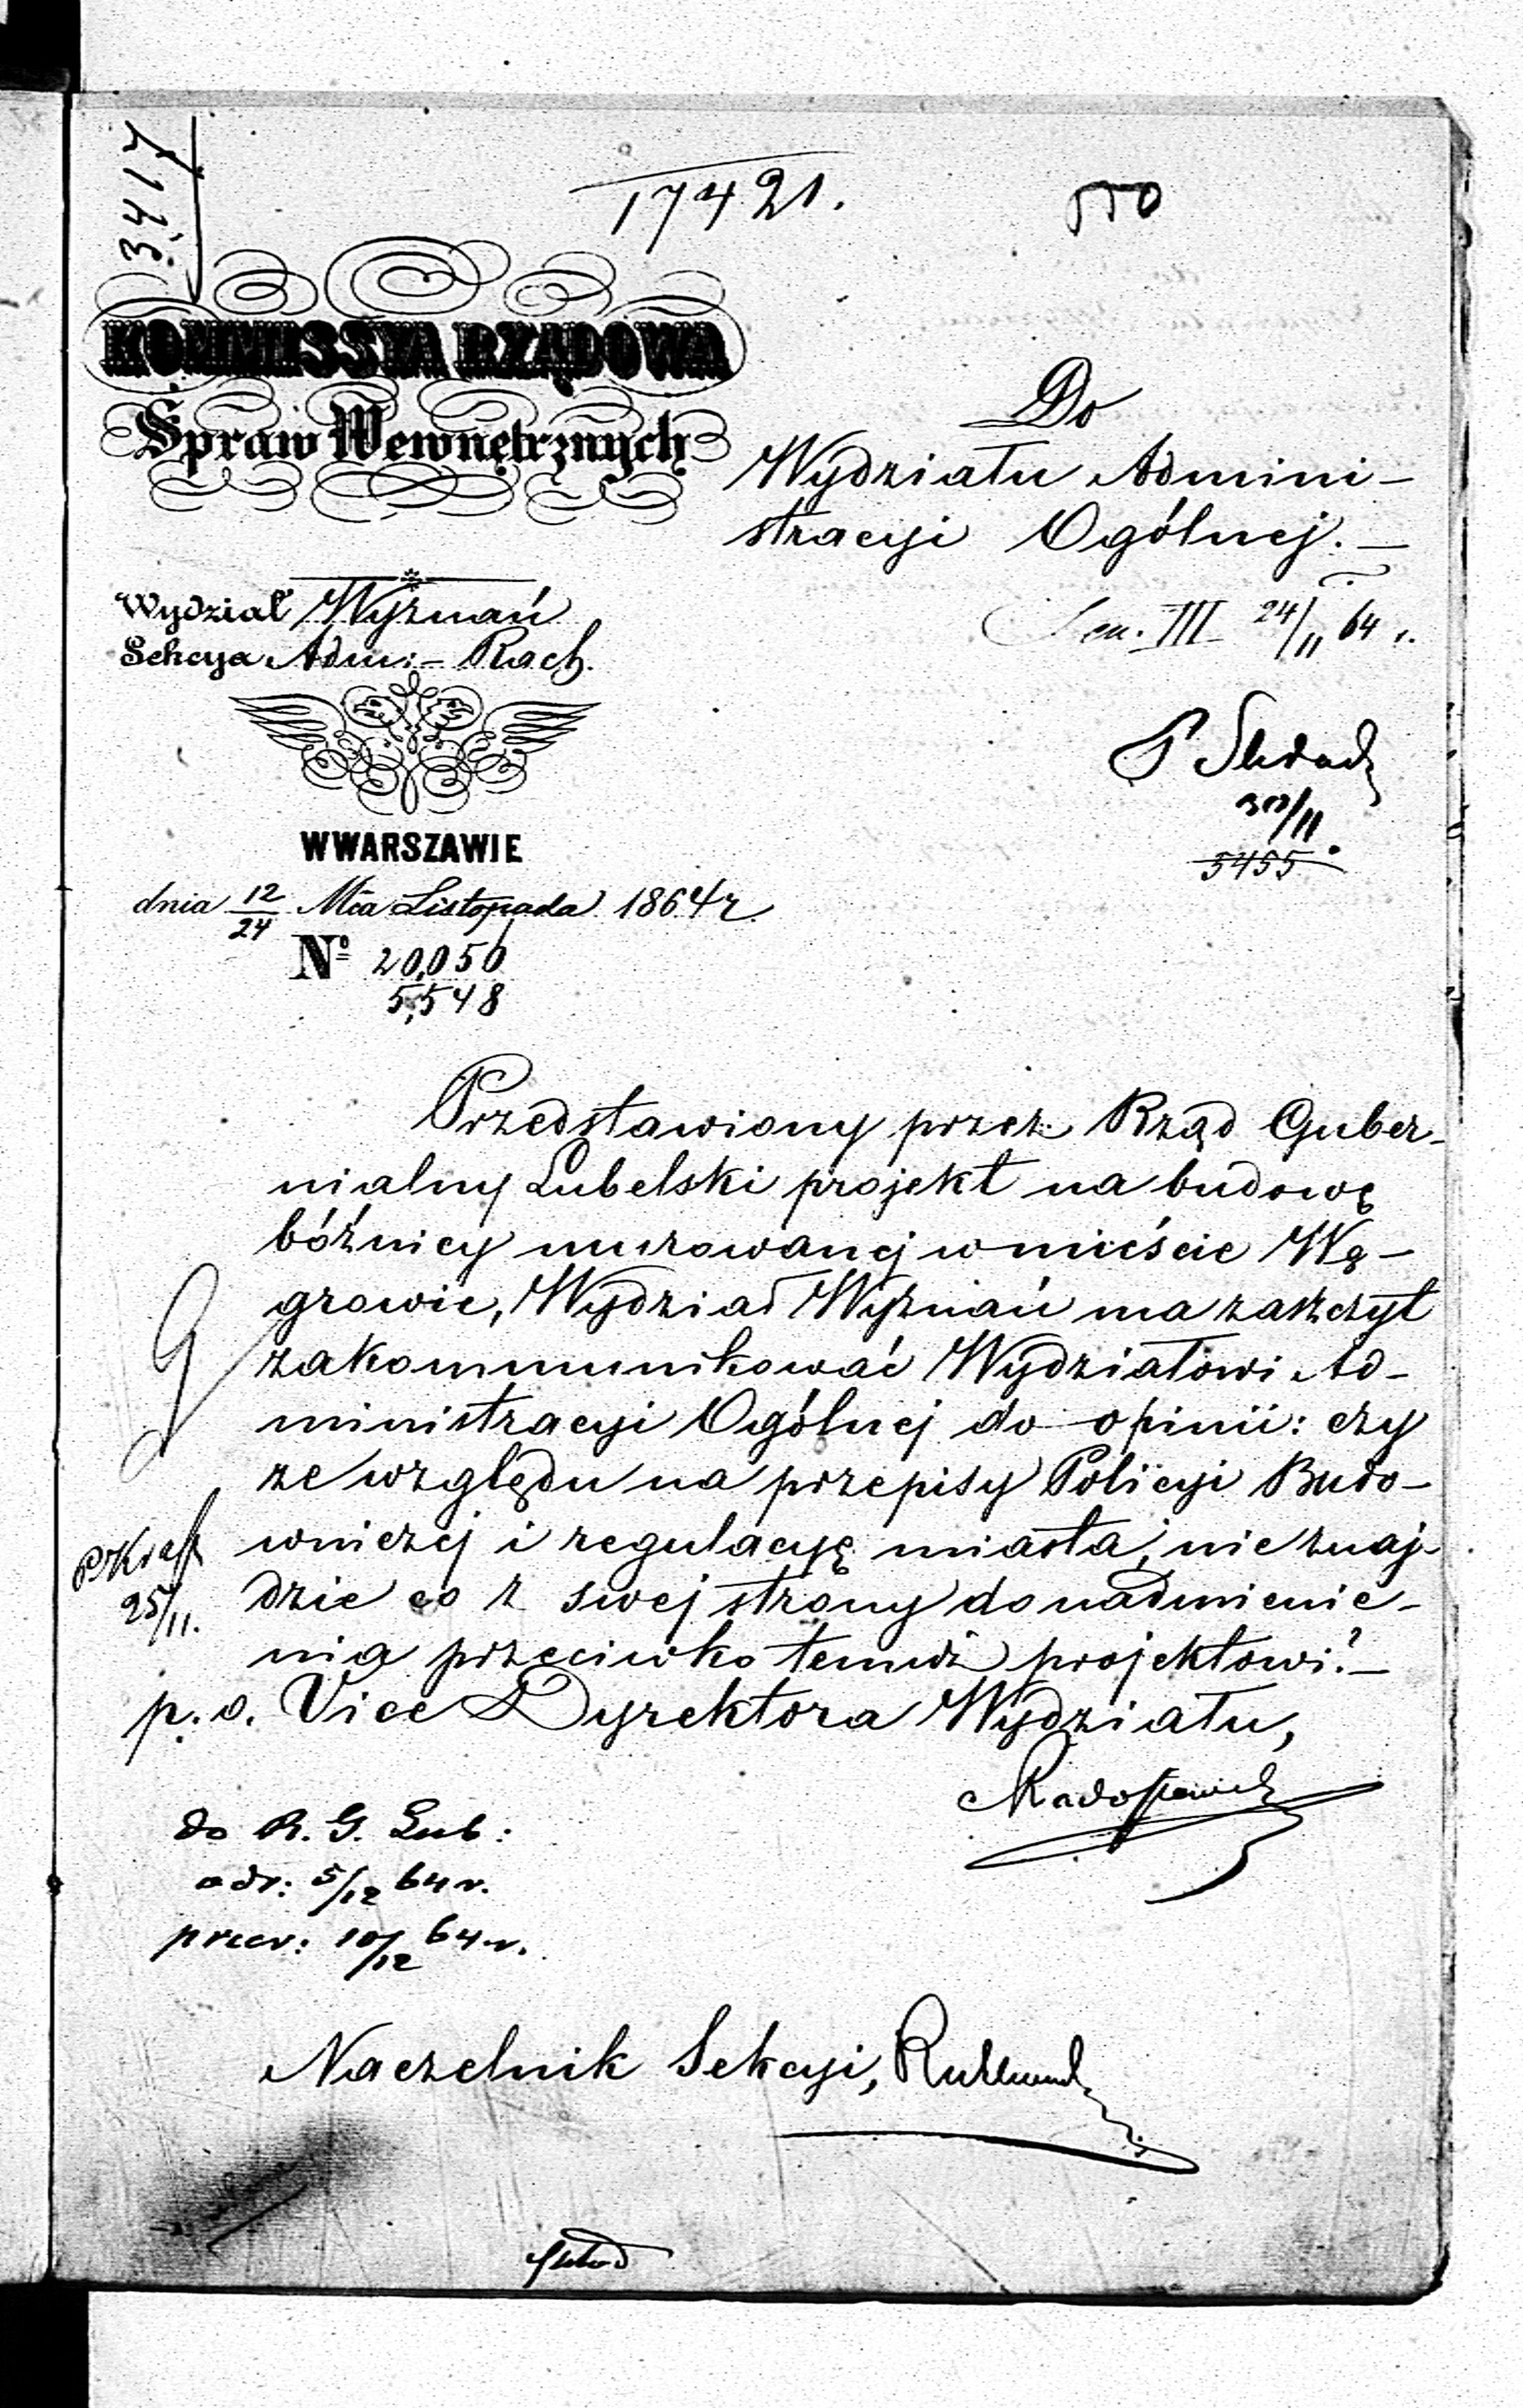 3417
17421.
550
KOMMISSYA RZĄDOWA
Spraw Wewnętrznych
Do
Wydziału Admini-
stracyi Ogólnej.
III 24/11 64 r.
Wydział Wyznań
Sekcya Adm:- Rach.
30/11.
5455
W WARSZAWIE
dnia 12/24 Mca Listopada 1864 r.
No 20,056
5,548
Przedstawiony przez Rząd Guber-
nialny Lubelski projekt na budowę
bóżnicy murowanej w mieście Wę-
growie, Wydział Wyznań ma zaszczyt
zakommunikować Wydziałowi Ad-
ministracyi Ogólnej do opinii: czy
ze względu na przepisy Policyi Budo-
wniczej i regulacyę miasta, nie znaj-
dzie co z swej strony do nadmienie-
nia przeciwko temuż projektowi?
25/11.
p. o. Vice Dyrektora Wydziału,
do R. G. Lub:
odr: 5/12 64 r.
prier: 10/12 64 r.
Naczelnik Sekcyi,